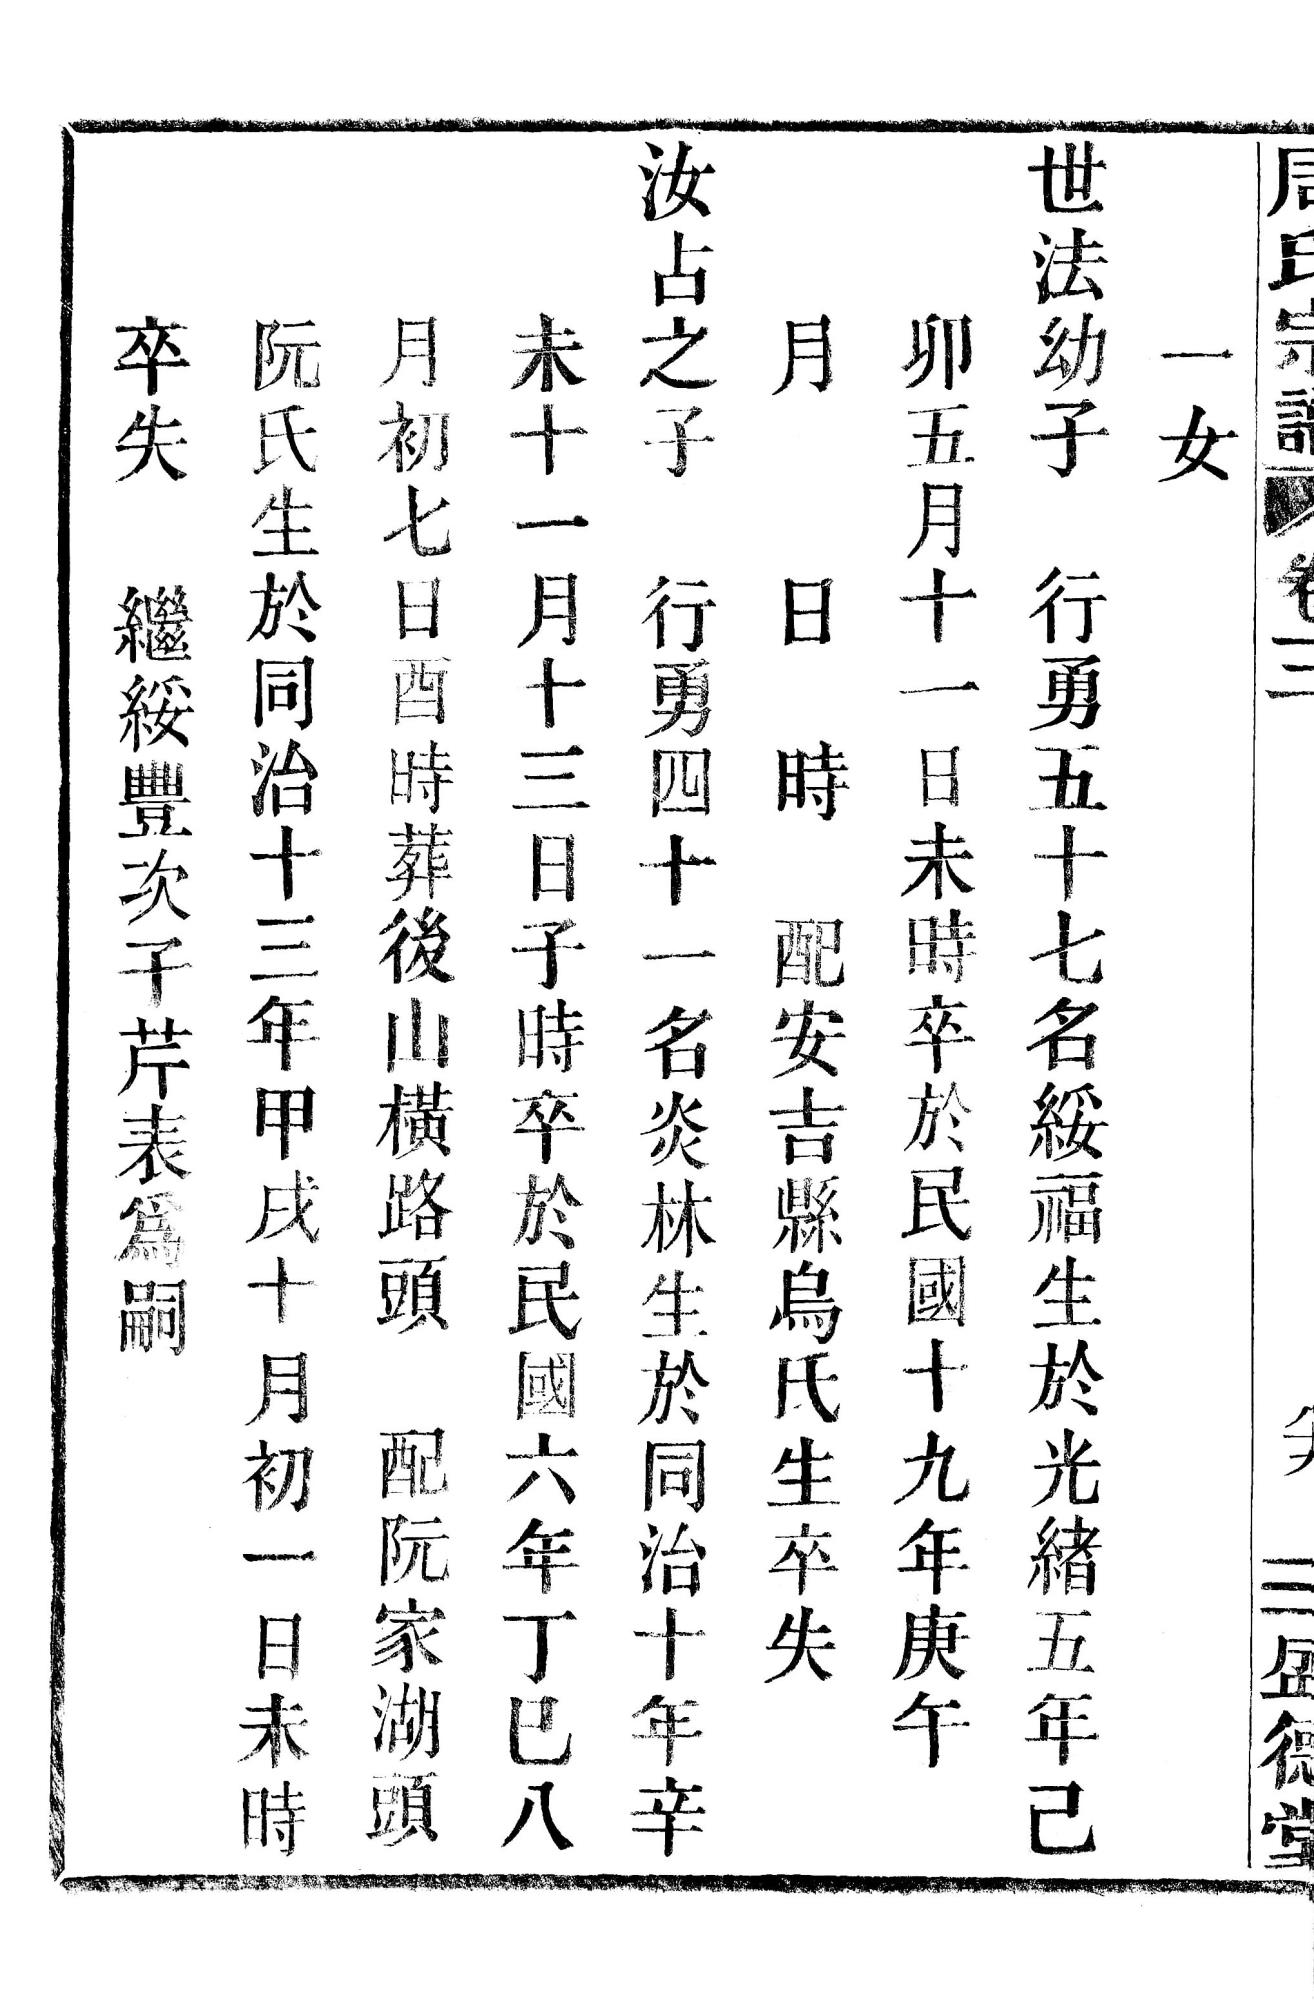 周氏宗譜 卷三 三盛德堂
一女
世法幼子 行勇五十七名綏福生於光緒五年己
卯五月十一日未時卒於民國十九年庚午
月 日 時 配安吉縣烏氏生卒失
汝占之子 行勇四十一名炎林生於同治十年辛
未十一月十三日子時卒於民國六年丁巳八
月初七日酉時葬後山橫路頭 配阮家湖頭
阮氏生於同治十三年甲戌十月初一日未時
卒失 繼綏豐次子芹表為嗣